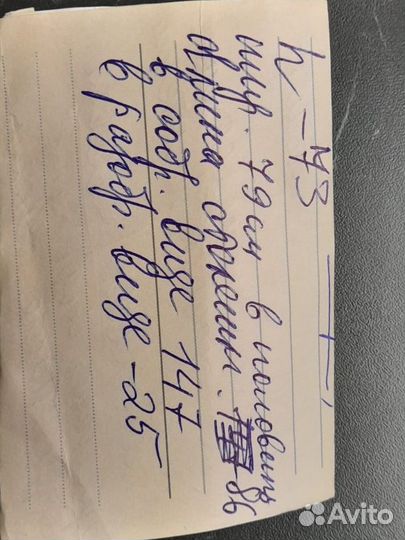 h - 73
шир. 79 см в половине
длина столешн. 86
в собр. виде 147
в разобр. виде - 25
Avito